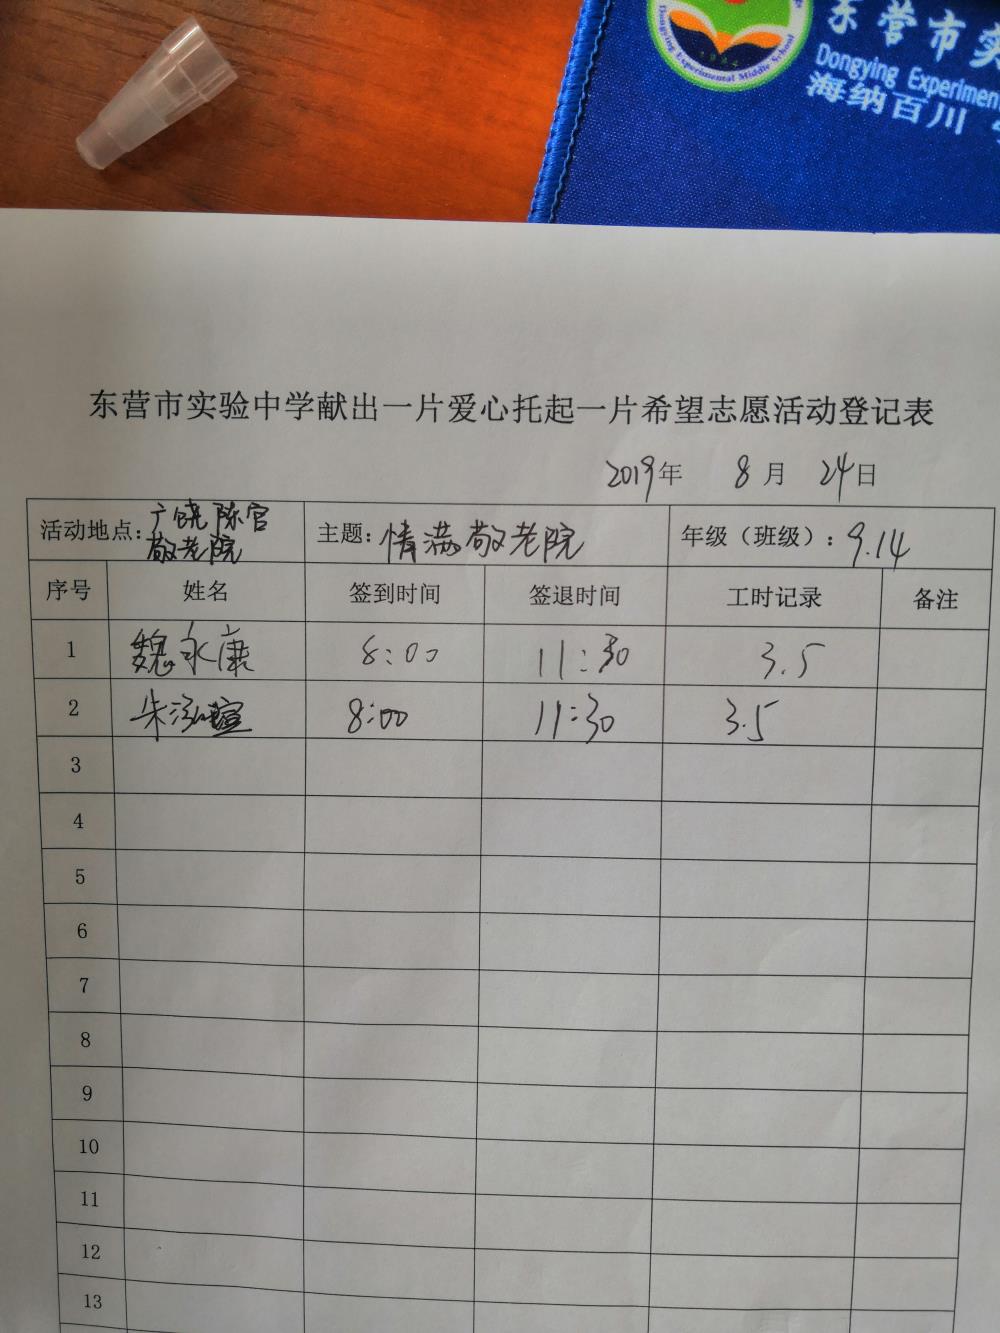 东营市实
Dongying Experimen
海纳百川
Dongying Experimental Middle School
东营市实验中学献出一片爱心托起一片希望志愿活动登记表
2019年 8月 24日
活动地点：广饶陈官敬老院 主题：情满敬老院 年级（班级）：9.14
序号 姓名 签到时间 签退时间 工时记录 备注
1 魏永康 8:00 11:30 3.5
2 朱泓暄 8:00 11:30 3.5
3
4
5
6
7
8
9
10
11
12
13